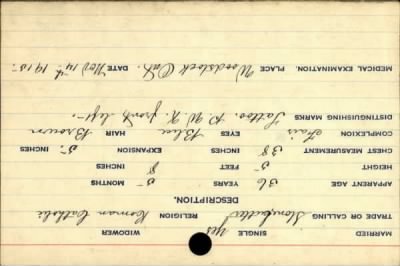 MARRIED SINGLE yes WIDOWER
TRADE OR CALLING Stonecutter RELIGION Roman Catholic
DESCRIPTION.
APPARENT AGE 36 YEARS 5 MONTHS
HEIGHT 5 FEET 8 INCHES
CHEST MEASUREMENT 38 INCHES EXPANSION 5 INCHES
COMPLEXION Fair EYES Blue HAIR Brown
DISTINGUISHING MARKS Tattoo.
MEDICAL EXAMINATION. PLACE Woodstock Ont. DATE Nov 14th 1915.